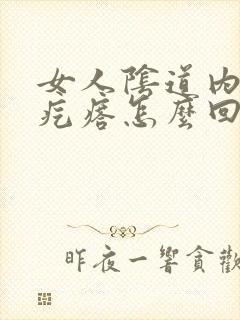 女人陰道內
疙瘩怎麼回
昨夜一響貪歡